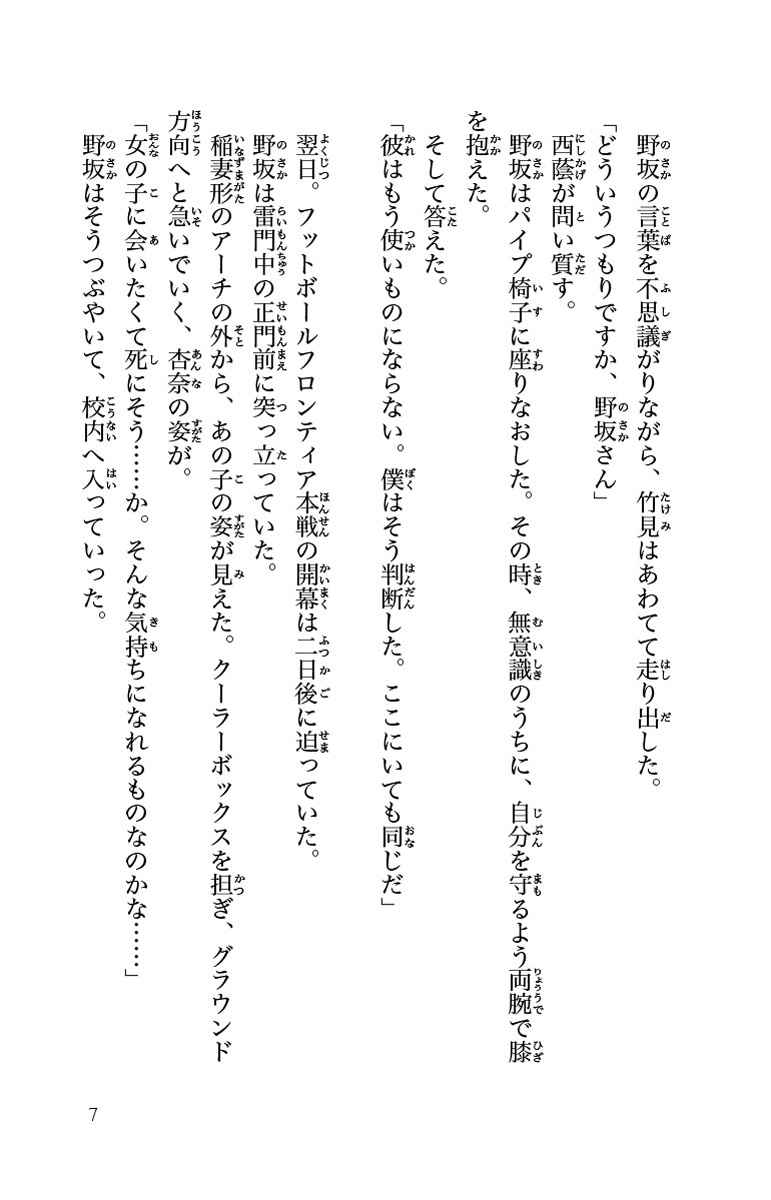 野坂の言葉を不思議がりながら、竹見はあわてて走り出した。
「どういうつもりですか、野坂さん」
西蔭が問い質す。
野坂はパイプ椅子に座りなおした。その時、無意識のうちに、自分を守るよう両腕で膝
を抱えた。
そして答えた。
「彼はもう使いものにならない。僕はそう判断した。ここにいても同じだ」
翌日。フットボールフロンティア本戦の開幕は二日後に迫っていた。
野坂は雷門中の正門前に突っ立っていた。
稲妻形のアーチの外から、あの子の姿が見えた。クーラーボックスを担ぎ、グラウンド
方向へと急いでいく、杏奈の姿が。
「女の子に会いたくて死にそう……か。そんな気持ちになれるものなのかな……」
野坂はそうつぶやいて、校内へ入っていった。
7